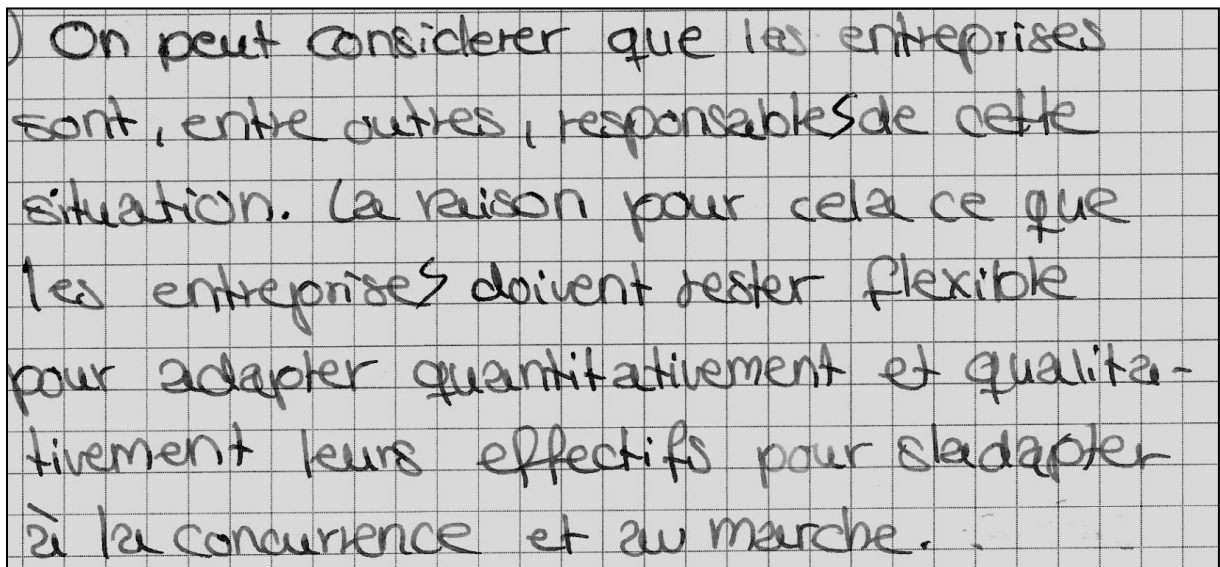 ) On peut considerer que les entreprises
sont, entre autres, responsables de cette
situation. La raison pour cela ce que
les entreprises doivent rester flexible
pour adapter quantitativement et qualita-
tivement leurs effectifs pour s'adapter
à la concurrence et au marche.